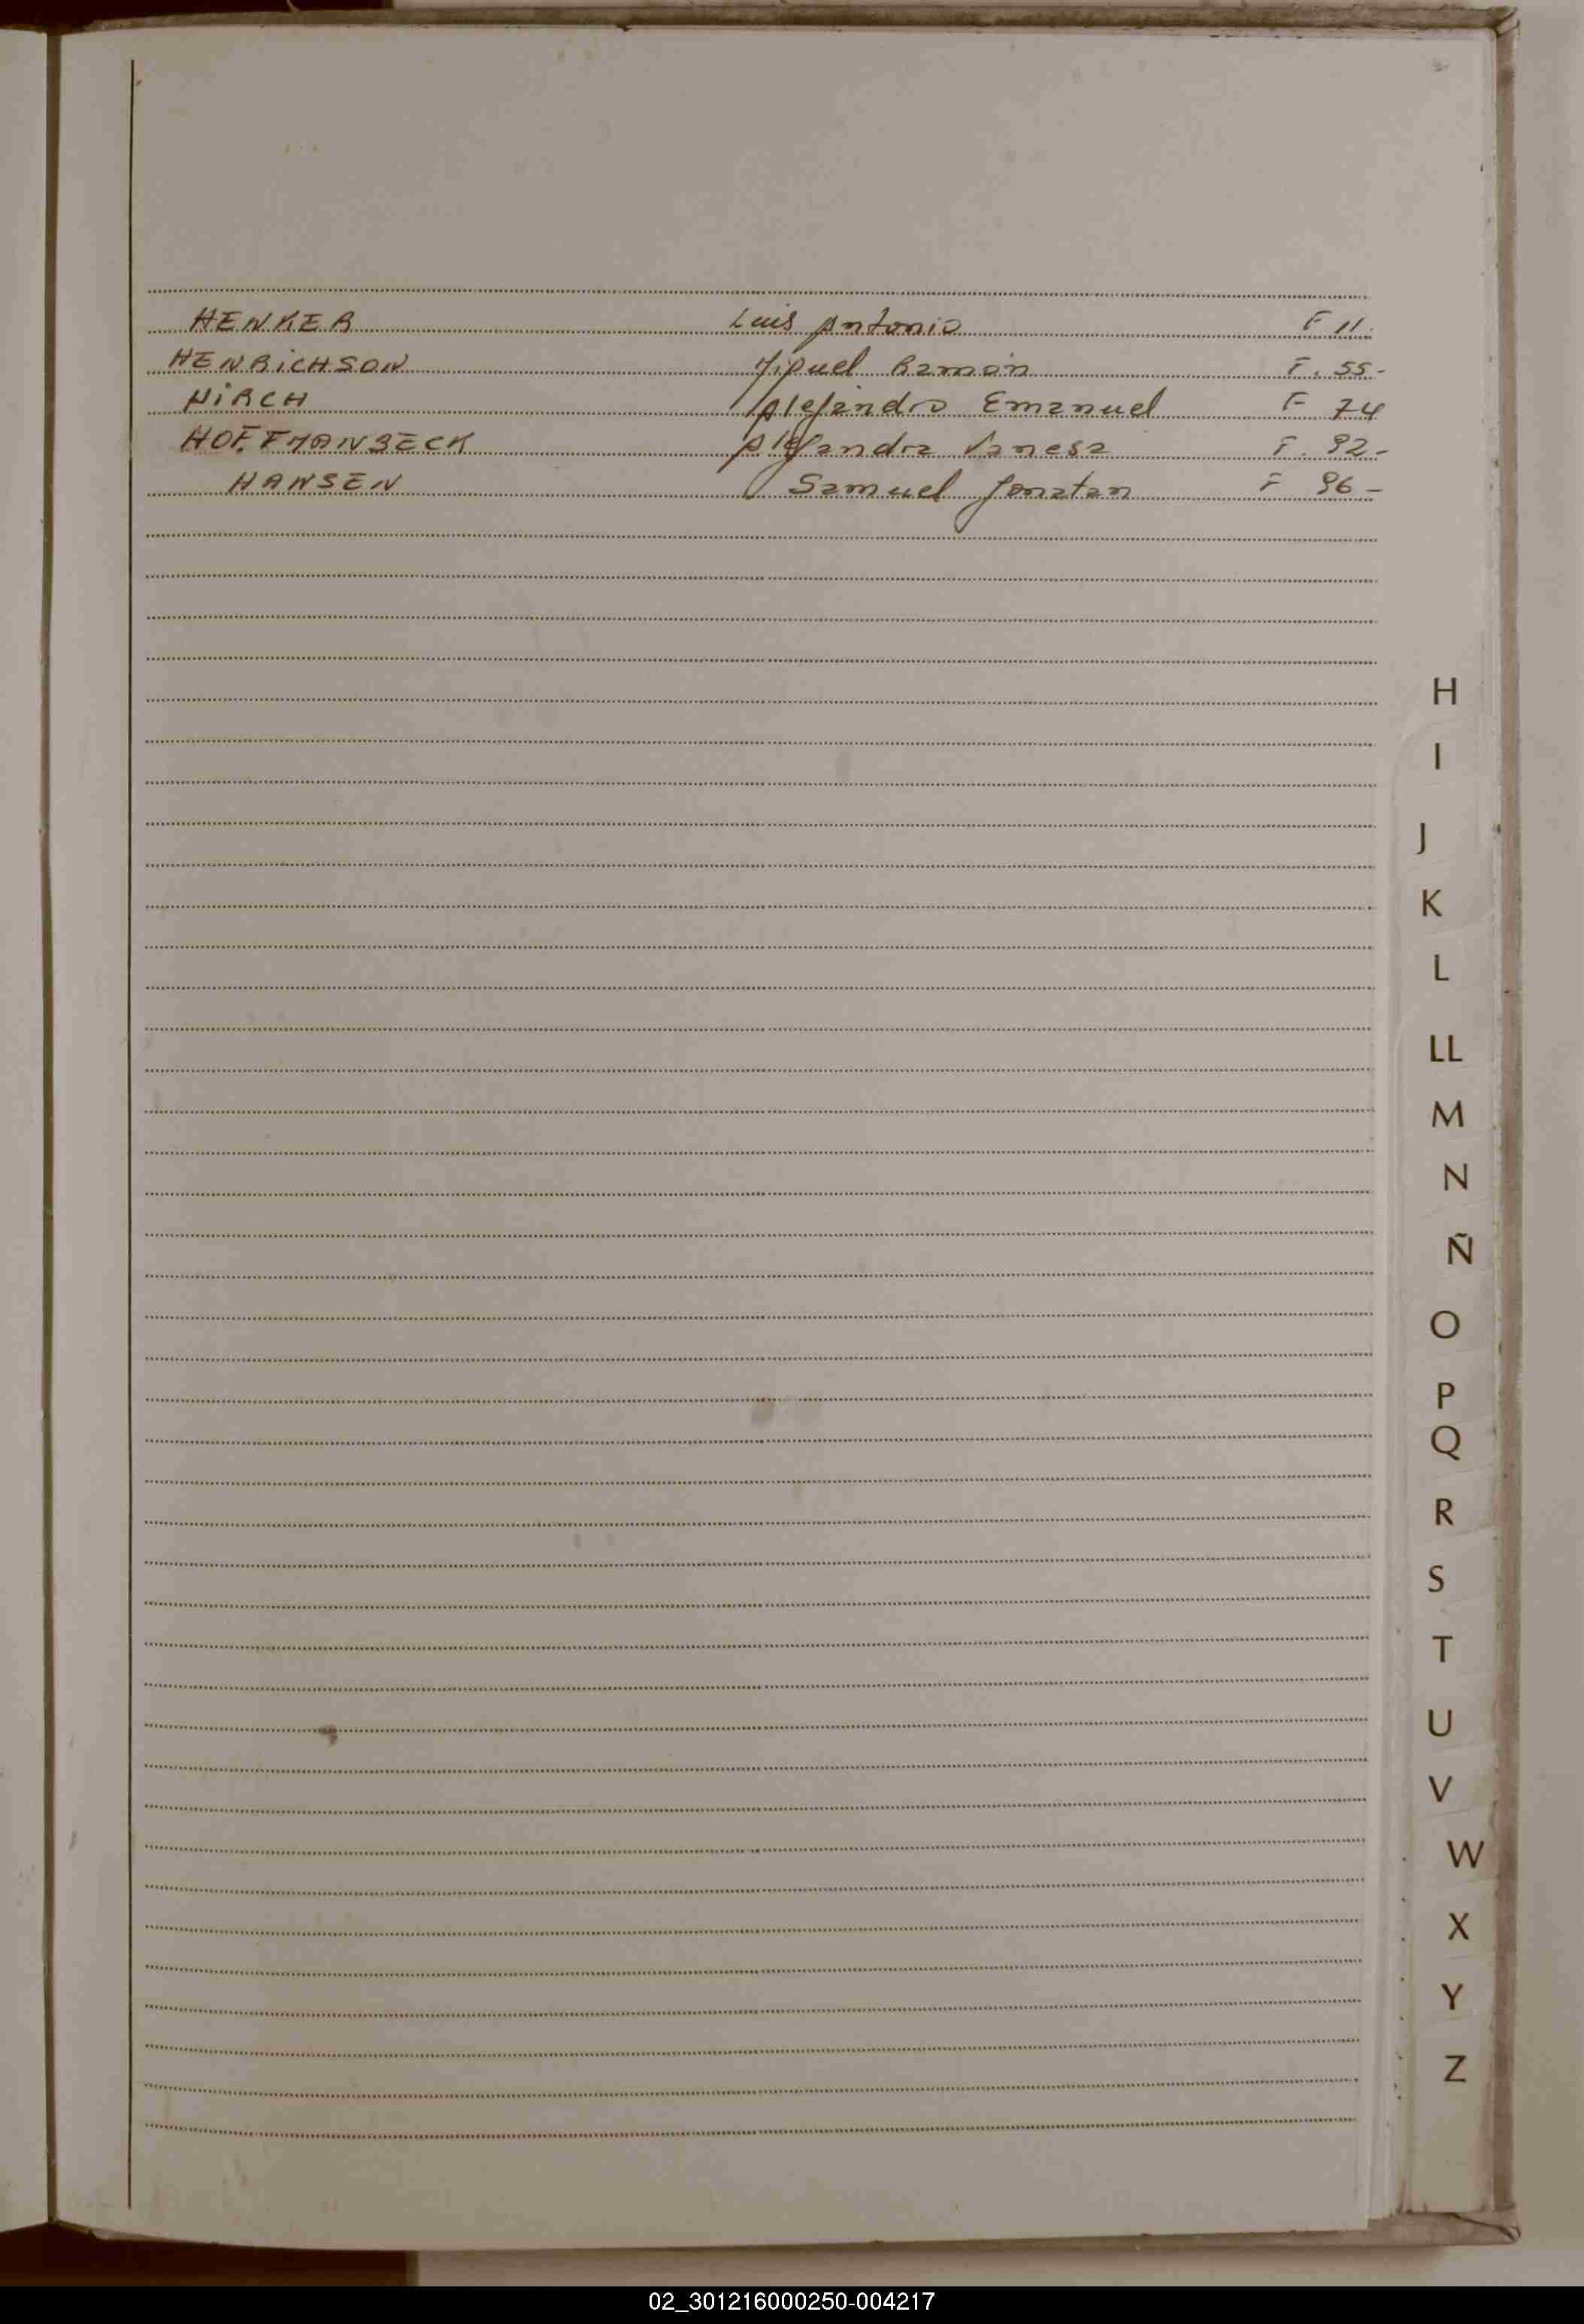 HENKER Luis Antonio F 11.
HENRICHSON Miguel Ramón F. 55-
HIRCH Alejandro Emanuel F 74
HOFFMANBECK Alejandra Vanesa F. 92-
HANSEN Samuel Jonatan F 96-
H
I
J
K
L
LL
M
N
Ñ
O
P
Q
R
S
T
U
V
W
X
Y
Z
02_301216000250-004217